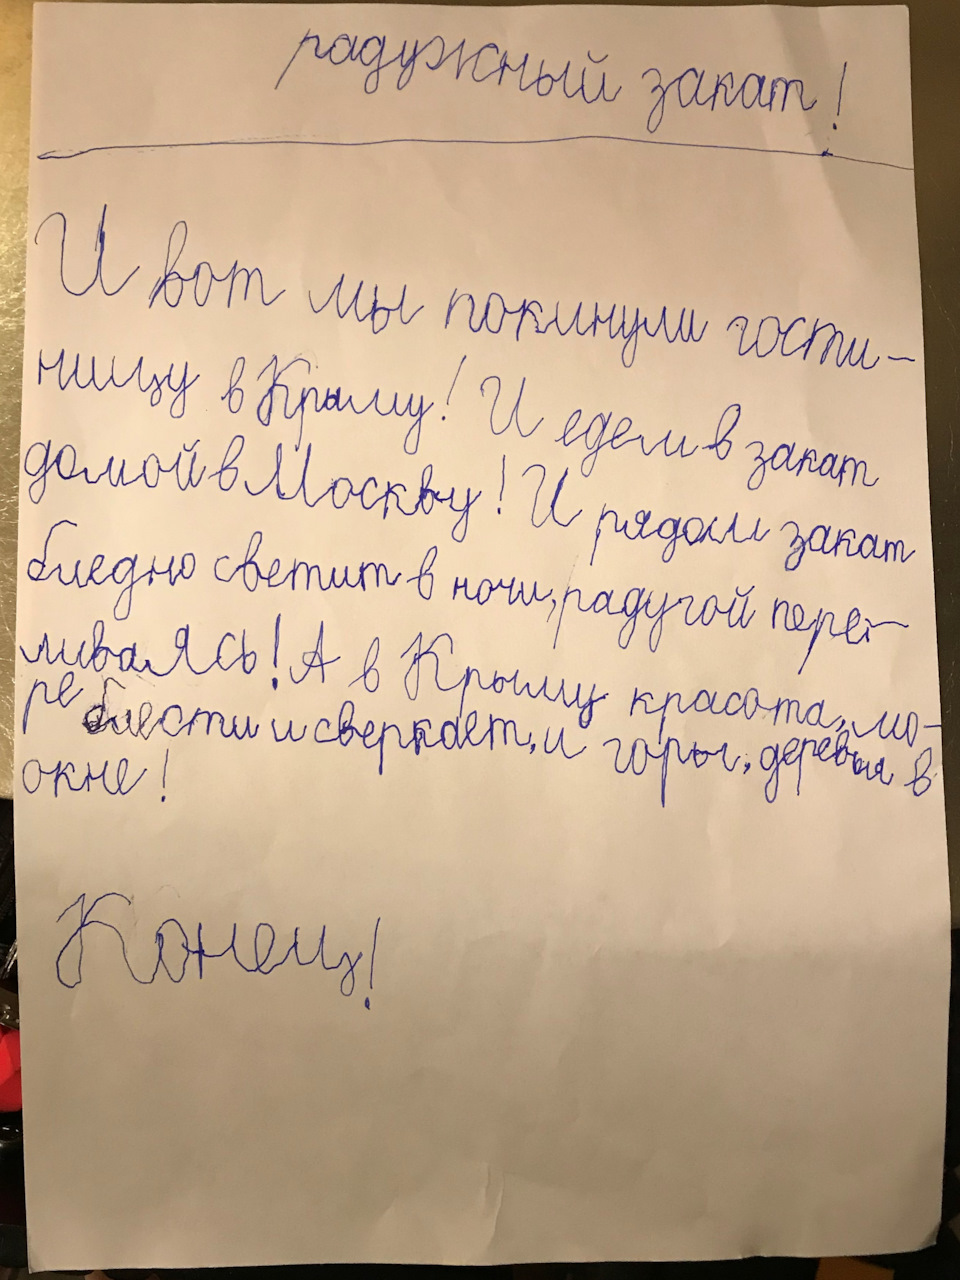 радужный закат!
И вот мы покинули гости-
ницу в Крыму! И едем в закат
домой в Москву! И рядом закат
бледно светит в ночи, радугой пере-
ливаясь! А в Крыму красота, мо-
ре блести и сверкает, и горы, деревья в
окне!
Конец!